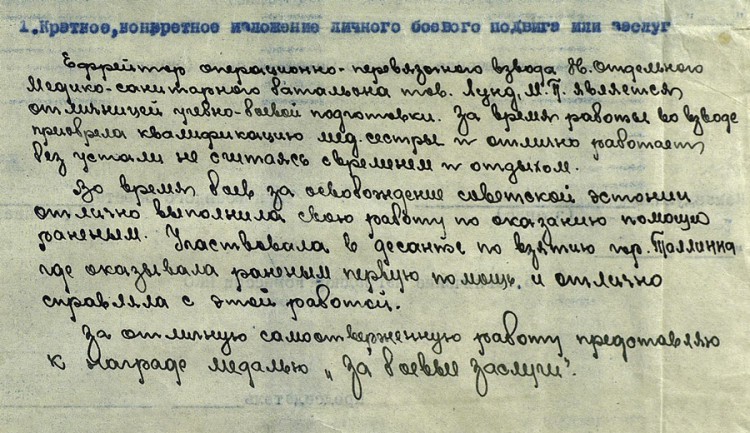 1. Краткое, конкретное изложение личного боевого подвига или заслуг
Ефрейтор операционно-перевязочного взвода Н. Отдельного
Медико-санитарного батальона тов. Лунд, М.П. является
отличницей учебно-боевой подготовки. За время работы во взводе
приобрела квалификацию мед. сестры и отлично работает
без устали не считаясь с временем и отдыхом.
Во время боев за освобождение советской эстонии
отлично выполнила свою работу по оказанию помощи
раненым. Участвовала в десанте по взятию гор. Таллинна
где оказывала раненым первую помощь и отлично
справляла с этой работой.
За отличную самоотверженную работу представляю
к награде медалью „За боевые заслуги".